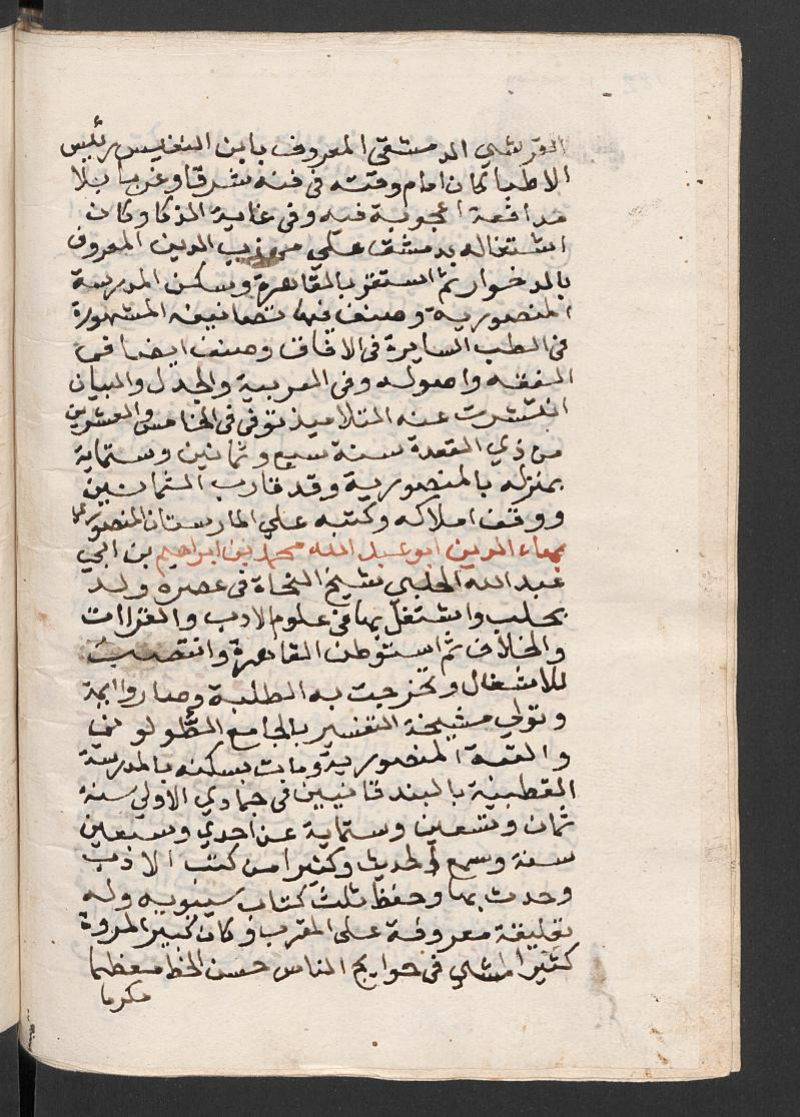 القرشي الدمشقي المعروف بابن النفيس رئيس
الاطبا كان امام وقته في فنه شرقا وغربا بلا
مدافعة اعجوبة فيه وفى غاية الذكا وكان
اشتغاله بدمشق علي مهذب الدين المعروف
بالدخوار ثم استقر بالقاهرة وسكن المدرسة
المنصورية وصنف فيها تصانيفه المشهورة
فى الطب السايرة فى الافاق وصنف ايضا في
الفقه واصوله وفى العربية والجدل والبيان
انتشرت عنه التلاميذ توفى فى الخامس والعشرين
من ذي القعدة سنة سبع وثمانين وستماية
بمنزله بالمنصورية وقد قارب الثمانين
ووقف املاكه وكتبه علي المارستان المنصوري
بهاء الدين ابو عبد الله محمد بن ابراهيم بن ابي
عبد الله الحلبي شيخ النحاة فى عصره ولد
بحلب واشتغل بها فى علوم الادب والقراات
والخلاف ثم استوطن القاهرة وانتصب
للاشغال وتخرجت به الطلبة وصاروا ايمة
وتولي مشيخة التفسير بالجامع الطولوني
والقبة المنصورية ومات بسكنه بالمدرسة
القطبية بالبندقانيين فى جمادي الاولي سنة
ثمان وتسعين وستماية عن احدي وسبعين
سنة وسمع الحديث وكثيرا من كتب الادب
وحدث بها وحفظ ثلث كتاب سيبويه وله
تعليقة معروفة على المقرب وكان كبير المروة
كثير المشي فى حوايج الناس حسن الخط معظما
مكرما